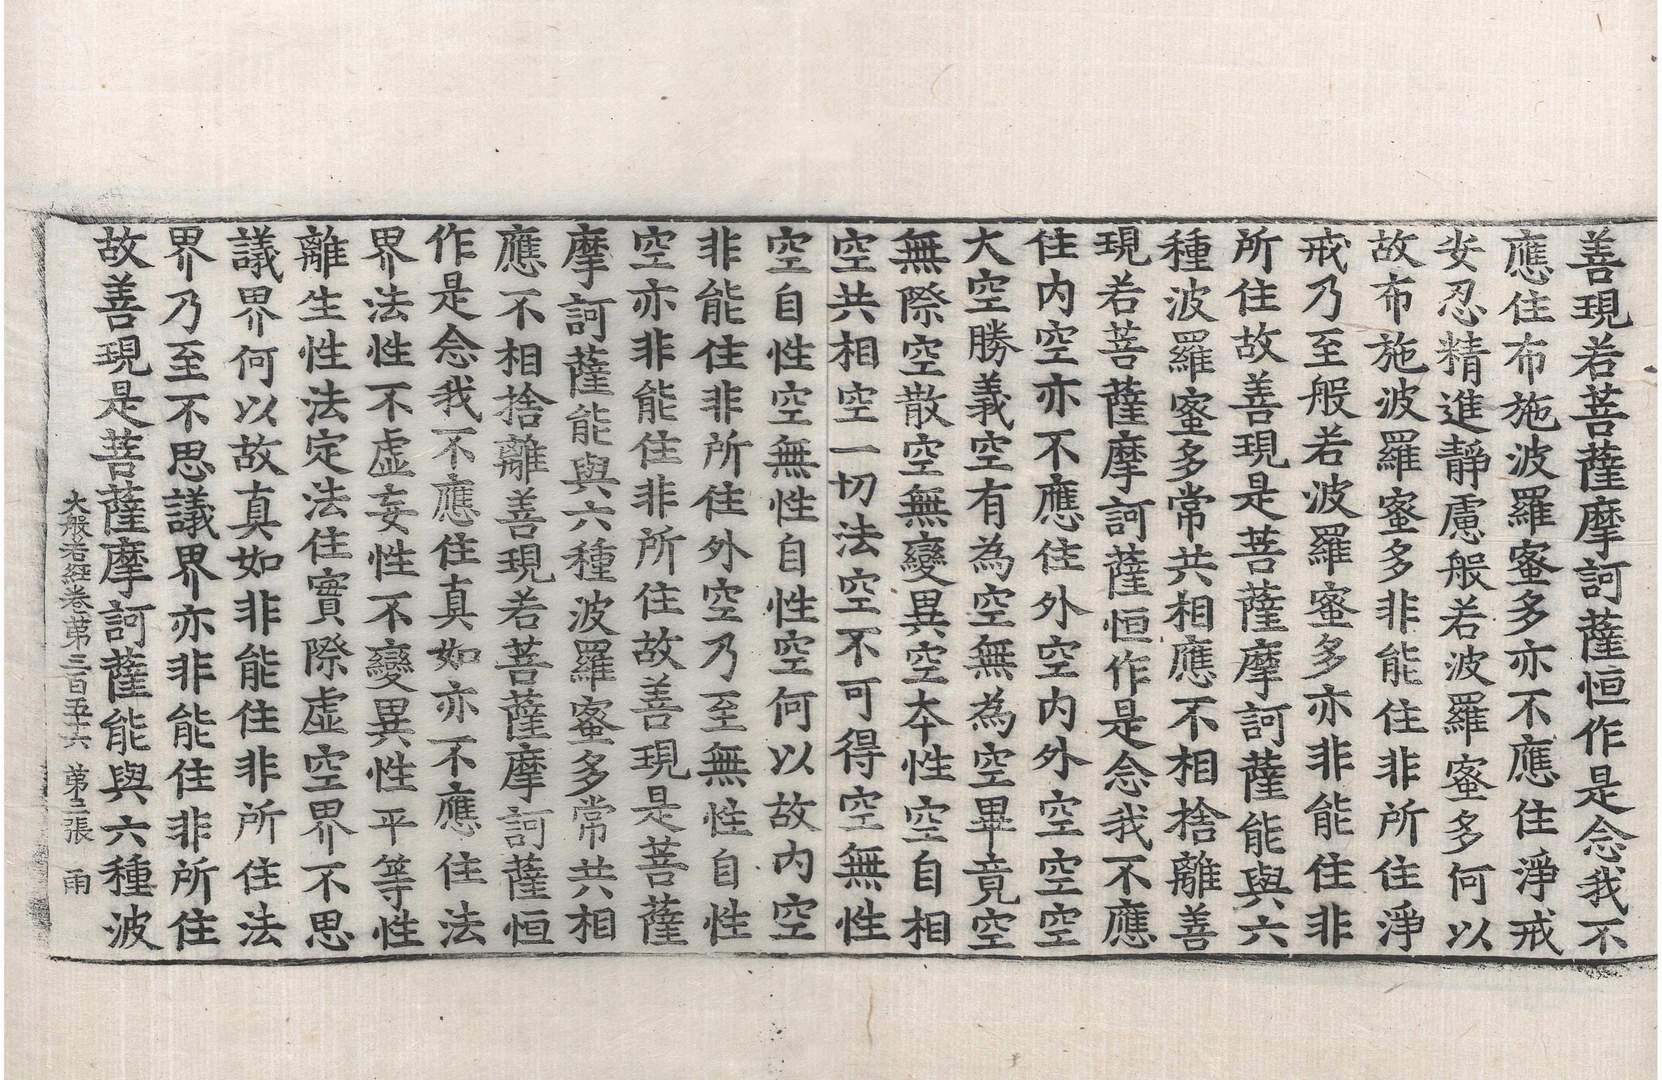 善現若菩薩摩訶薩恒作是念我不
應住布施波羅蜜多亦不應住淨戒
安忍精進靜慮般若波羅蜜多何以
故布施波羅蜜多非能住非所住淨
戒乃至般若波羅蜜多亦非能住非
所住故善現是菩薩摩訶薩能與六
種波羅蜜多常共相應不相捨離善
現若菩薩摩訶薩恒作是念我不應
住內空亦不應住外空內外空空空
大空勝義空有為空無為空畢竟空
無際空散空無變異空本性空自相
空共相空一切法空不可得空無性
空自性空無性自性空何以故內空
非能住非所住外空乃至無性自性
空亦非能住非所住故善現是菩薩
摩訶薩能與六種波羅蜜多常共相
應不相捨離善現若菩薩摩訶薩恒
作是念我不應住真如亦不應住法
界法性不虛妄性不變異性平等性
離生性法定法住實際虛空界不思
議界何以故真如非能住非所住法
界乃至不思議界亦非能住非所住
故善現是菩薩摩訶薩能與六種波
大般若經卷第三百五十六 第三張 雨